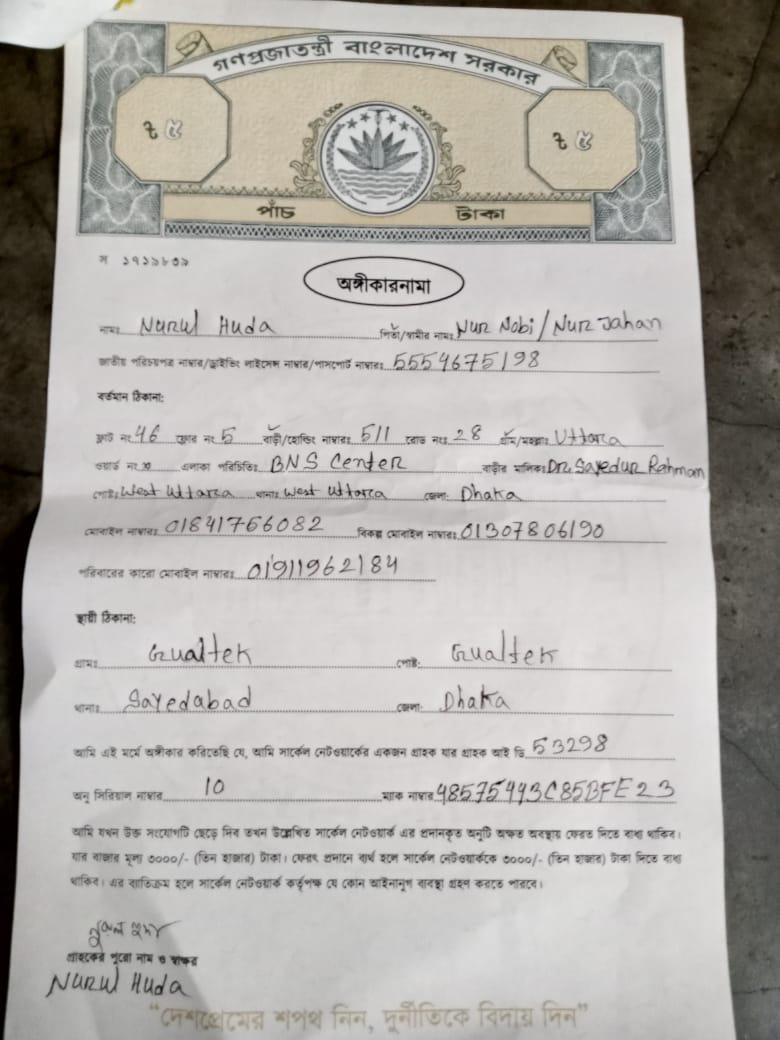 গণপ্রজাতন্ত্রী বাংলাদেশ সরকার
৳ ৫ ৳ ৫
পাঁচ টাকা
স ১৭১৯৮৩৯
অঙ্গীকারনামা
নামঃ Nurul Huda পিতা/স্বামীর নামঃ Nur Nobi / Nur Jahan
জাতীয় পরিচয়পত্র নাম্বার/ড্রাইভিং লাইসেন্স নাম্বার/পাসপোর্ট নাম্বারঃ 5554675198
বর্তমান ঠিকানা:
ফ্লাট নং 46 ফ্লোর নং 5 বাড়ী/হোল্ডিং নাম্বারঃ 511 রোড নংঃ 28 গ্রাম/মহল্লাঃ Uttara
ওয়ার্ড নং এলাকা পরিচিতিঃ BNS Center বাড়ীর মালিকঃ Dr. Sayedur Rahman
পোষ্টঃ West Uttara থানাঃ West Uttara জেলা: Dhaka
মোবাইল নাম্বারঃ 01841766082 বিকল্প মোবাইল নাম্বারঃ 01307806190
পরিবারের কারো মোবাইল নাম্বারঃ 01911962184
স্থায়ী ঠিকানা:
গ্রামঃ Gualtek পোষ্ট: Gualtek
থানাঃ Sayedabad জেলা: Dhaka
আমি এই মর্মে অঙ্গীকার করিতেছি যে, আমি সার্কেল নেটওয়ার্কের একজন গ্রাহক যার গ্রাহক আই ডি 53298
অনু সিরিয়াল নাম্বার 10 ম্যাক নাম্বার 48575443C85BFE23
আমি যখন উক্ত সংযোগটি ছেড়ে দিব তখন উল্লেখিত সার্কেল নেটওয়ার্ক এর প্রদানকৃত অনুটি অক্ষত অবস্থায় ফেরত দিতে বাধ্য থাকিব।
যার বাজার মূল্য ৩০০০/- (তিন হাজার) টাকা। ফেরৎ প্রদানে ব্যর্থ হলে সার্কেল নেটওয়ার্ককে ৩০০০/- (তিন হাজার) টাকা দিতে বাধ্য
থাকিব। এর ব্যতিক্রম হলে সার্কেল নেটওয়ার্ক কর্তৃপক্ষ যে কোন আইনানুগ ব্যবস্থা গ্রহণ করতে পারবে।
নুরুল হুদা
গ্রাহকের পুরো নাম ও স্বাক্ষর
Nurul Huda
“দেশপ্রেমের শপথ নিন, দুর্নীতিকে বিদায় দিন”